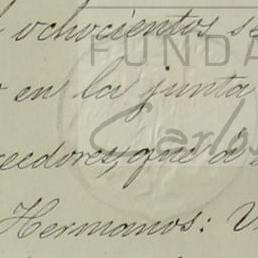 ochocientos se
FUNDA
en la junta
Carlos
reedores, que á
Hermanos: V